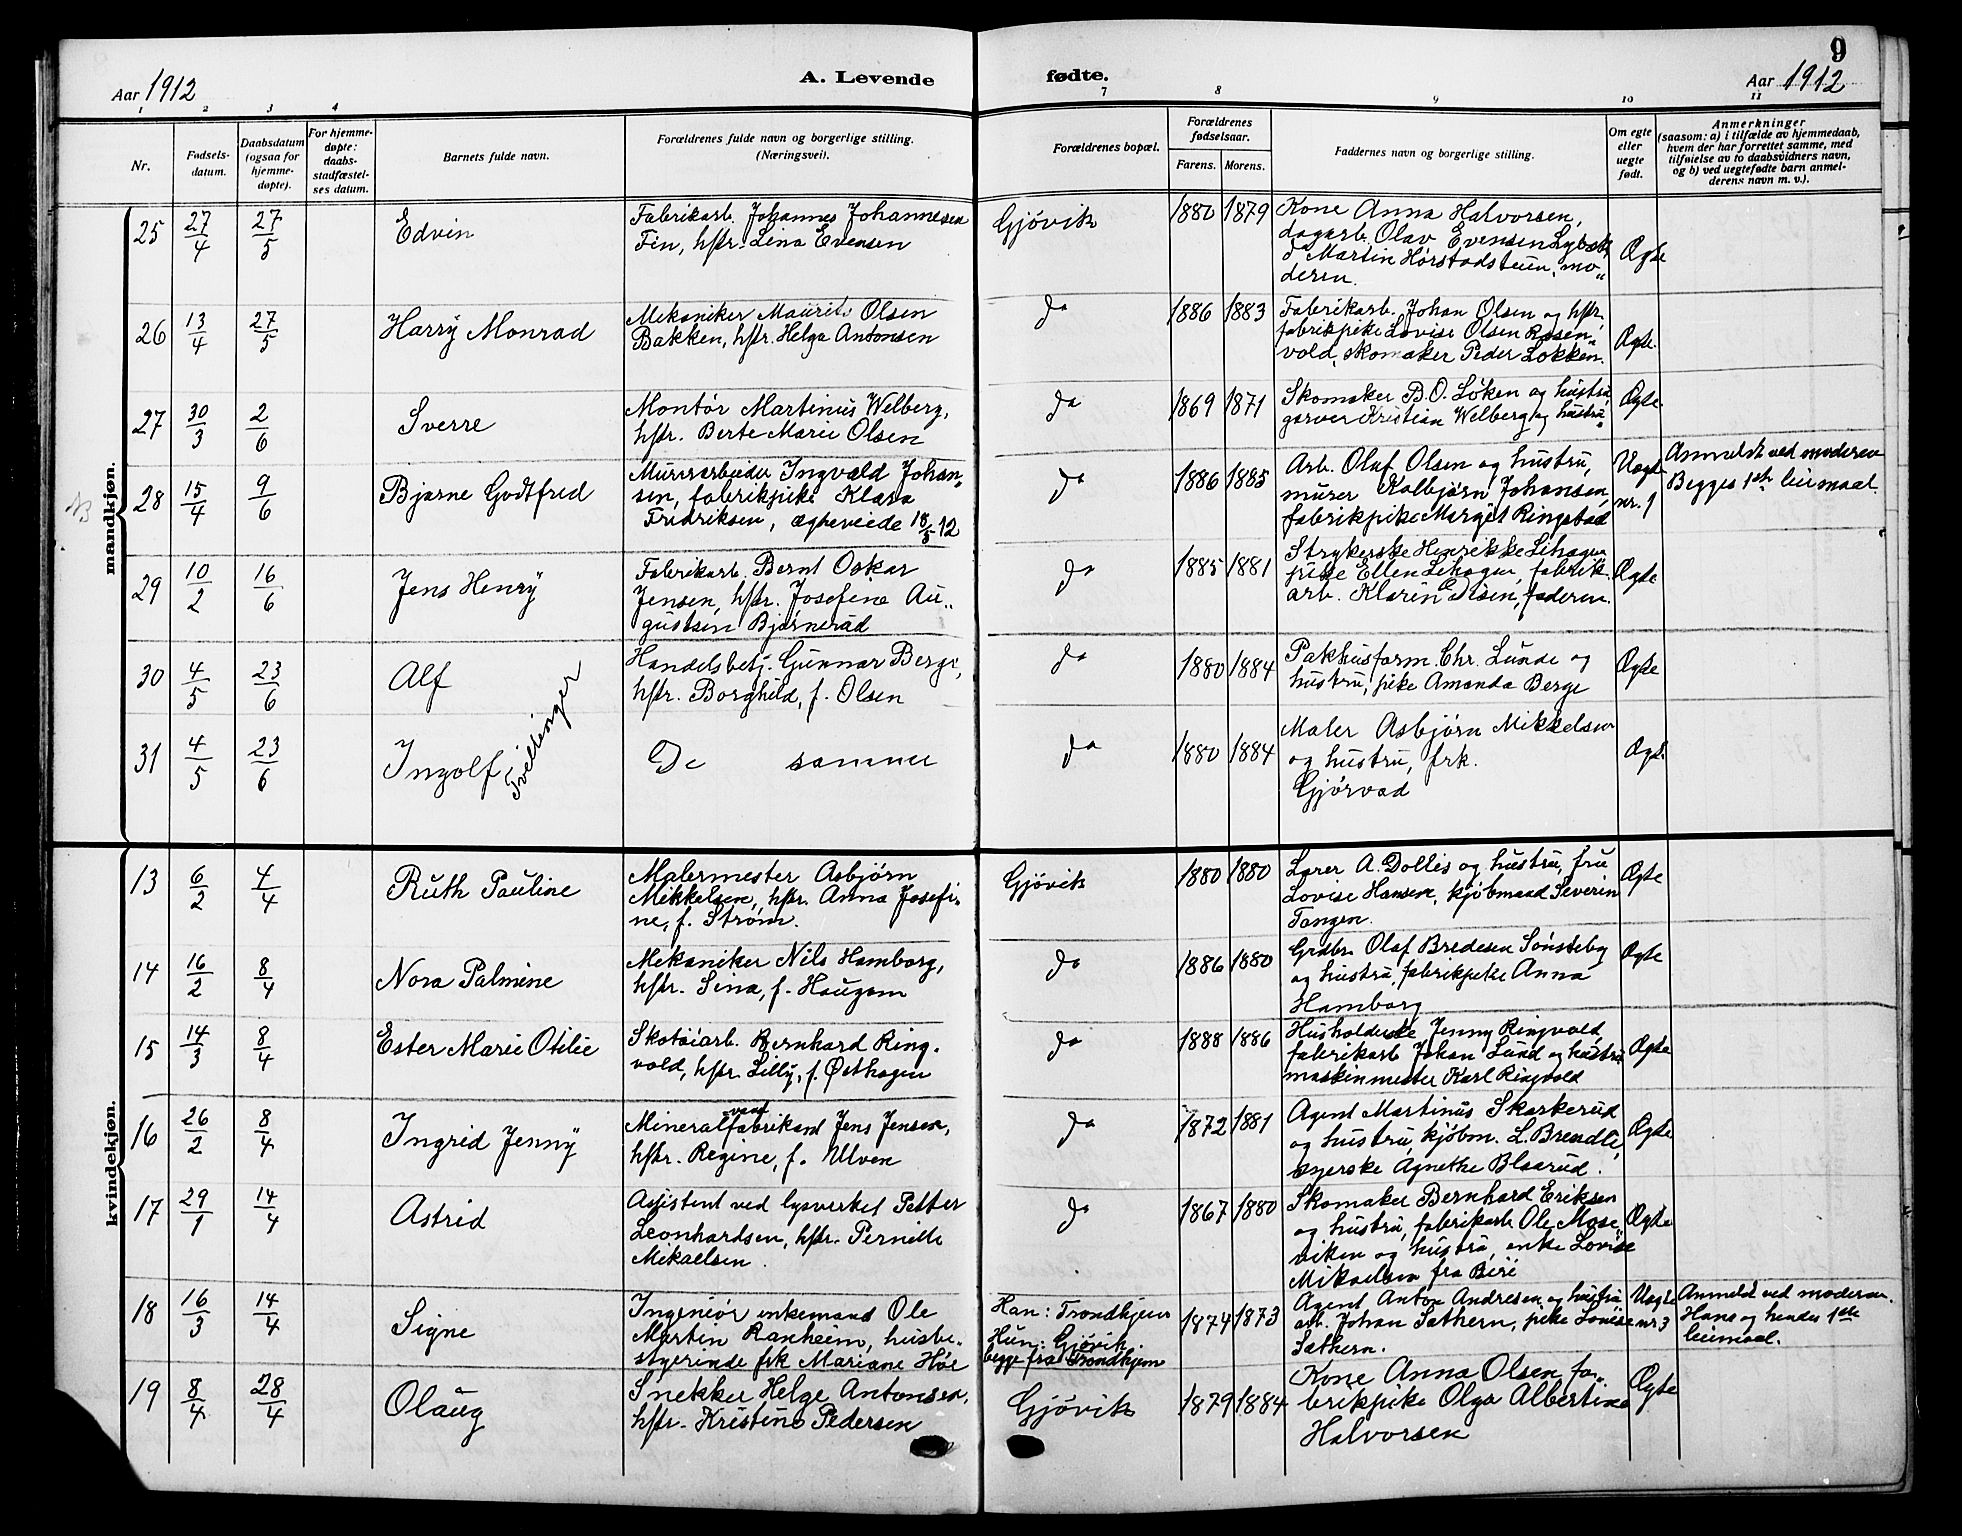 9
Aar 1912
A. Levende
fødte.
Aar 1912
1 2 3 4 7 8 9 10 11
Nr.
Fødsels-
datum.
Daabsdatum
(ogsaa for
hjemme-
døpte).
For hjemme-
døpte:
daabs-
stadfæstel-
ses datum.
Barnets fulde navn.
Forældrenes fulde navn og borgerlige stilling.
(Næringsvei).
Forældrenes bopæl.
Forældrenes
fødselsaar.
Farens. Morens.
Faddernes navn og borgerlige stilling.
Om egte
eller
uegte
født.
Anmerkninger
(saasom: a) i tilfælde av hjemmedaab,
hvem der har forrettet samme, med
tilføielse av to daabsvidners navn,
og b) ved uegtefødte barn anmel-
derens navn m. v.).
mandkjøn.
25 27/4 27/5 Edvin
Fabrikarb. Johannes Johannesen
Fin, hstr. Lina Evensen
Gjøvik 1880 1879
Kone Anna Halvorsen,
dagarb. Olav Evensen
Martin Hørstadsteun, mo-
deren.
Ægte
26 13/4 27/5 Harry Monrad
Mekaniker Maurits Olsen
Bakken, hstr. Helga Antonsen
do 1886 1883
Fabrikarb. Johan Olsen og hstr,
fabrikpike Lovise Olsen Rosen-
vold, skomaker Peder Løkken.
Ægte.
27 30/3 2/6 Sverre
Montør Martinus Welberg,
hstr. Berte Marie Olsen
do 1869 1871
Skomaker B. O. Løken og hustru,
garver Kristian Welberg og hustru
Ægte.
NB 28 15/4 9/6 Bjarne Godtfred
Murerarbeider Ingvald Johan-
sen, fabrikpike Klara
Fridriksen, egteviede 18/5 12
do 1886 1885
Arb. Olaf Olsen og hustru,
murer Kolbjørn Johansen,
fabrikpike Margit Ringstad
Uegte
nr. 1
Anmeldt ved moderen
Begges 1ste leiermaal.
29 10/2 16/6 Jens Henry
Fabrikarb. Bernt Oskar
Jensen, hstr. Josefine Au-
gustsen Bjørnerud
do 1885 1881
Strykerske Henrikke Lihagen
pike Ellen Lihagen, fabrik-
arb. Klarin Olsen, faderen.
Ægte
30 4/5 23/6 Alf
Handelsbetj. Gunnar Berge,
hstr. Borghild, f. Olsen
do 1880 1884
Pakhusform. Chr. Lunde og
hustru, pike Amanda Berge
Ægte
31 4/5 23/6 Ingolf
Tvillinger
De samme
do 1880 1884
Maler Asbjørn Mikkelsen
og hustru, frk.
Gjørvad
Ægte
kvindekjøn.
13 6/2 4/4 Ruth Pauline
Malermester Asbjørn
Mikkelsen, hstr. Anna Josefi-
ne, f. Strøm.
Gjøvik 1880 1880
Lærer A. Dollis og hustru, fru
Lovise Hansen, kjøbmand Severin
Tangen.
Ægte
14 16/2 8/4 Nora Palmine
Mekaniker Nils Hamborg,
hstr. Sina, f. Haugom
do 1886 1880
Grdbr. Olaf Bredesen Sønsteby
og hustru, fabrikpike Anna
Hamborg
Ægte
15 14/3 8/4 Ester Marie Otilie
Skotøiarb. Bernhard Ring-
vold, hstr. Lilly, f. Østhagen
do 1888 1886
Husholderske Jenny Ringvold,
fabrikarb. Johan Lund og hustru
maskinmester Karl Ringvold
Ægte
16 26/2 8/4 Ingrid Jenny
vand
Mineralfabrikant Jens Jensen,
hstr. Regine, f. Ulven
do 1872 1881
Agent Martinus Skarkerud
og hustru, kjøbm. L. Brendli,
syerske Agnethe Blaarud.
Ægte
17 29/1 14/4 Astrid
Assistent ved lysverket Petter
Leonhardsen, hstr. Pernille
Mikaelsen.
do 1867 1880
Skomaker Bernhard Eriksen
og hustru, fabrikarb. Ole Mose-
viken og hustru, enke Lovise
Mikaelsen fra Biri
Ægte
18 16/3 14/4 Signe
Ingeniør enkemand Ole
Martin Ranheim, husbe-
styrerinde frk Mariane Høe
Han: Trondhjem
Hun: Gjøvik.
begge fra Trondhjem
1874 1873
Agent Anton Andresen og hustru
arb. Johan Sathern, pike Lovise
Sathern.
Uegte
nr 3
Anmeldt ved moderen.
Hans og hendes 1ste
leiermaal.
19 8/4 28/4 Olaug
Snekker Helge Antonsen,
hstr. Kristine Pedersen
Gjøvik 1879 1884
Kone Anna Olsen, fa-
brikpike Olga Albertine
Halvorsen
Ægte